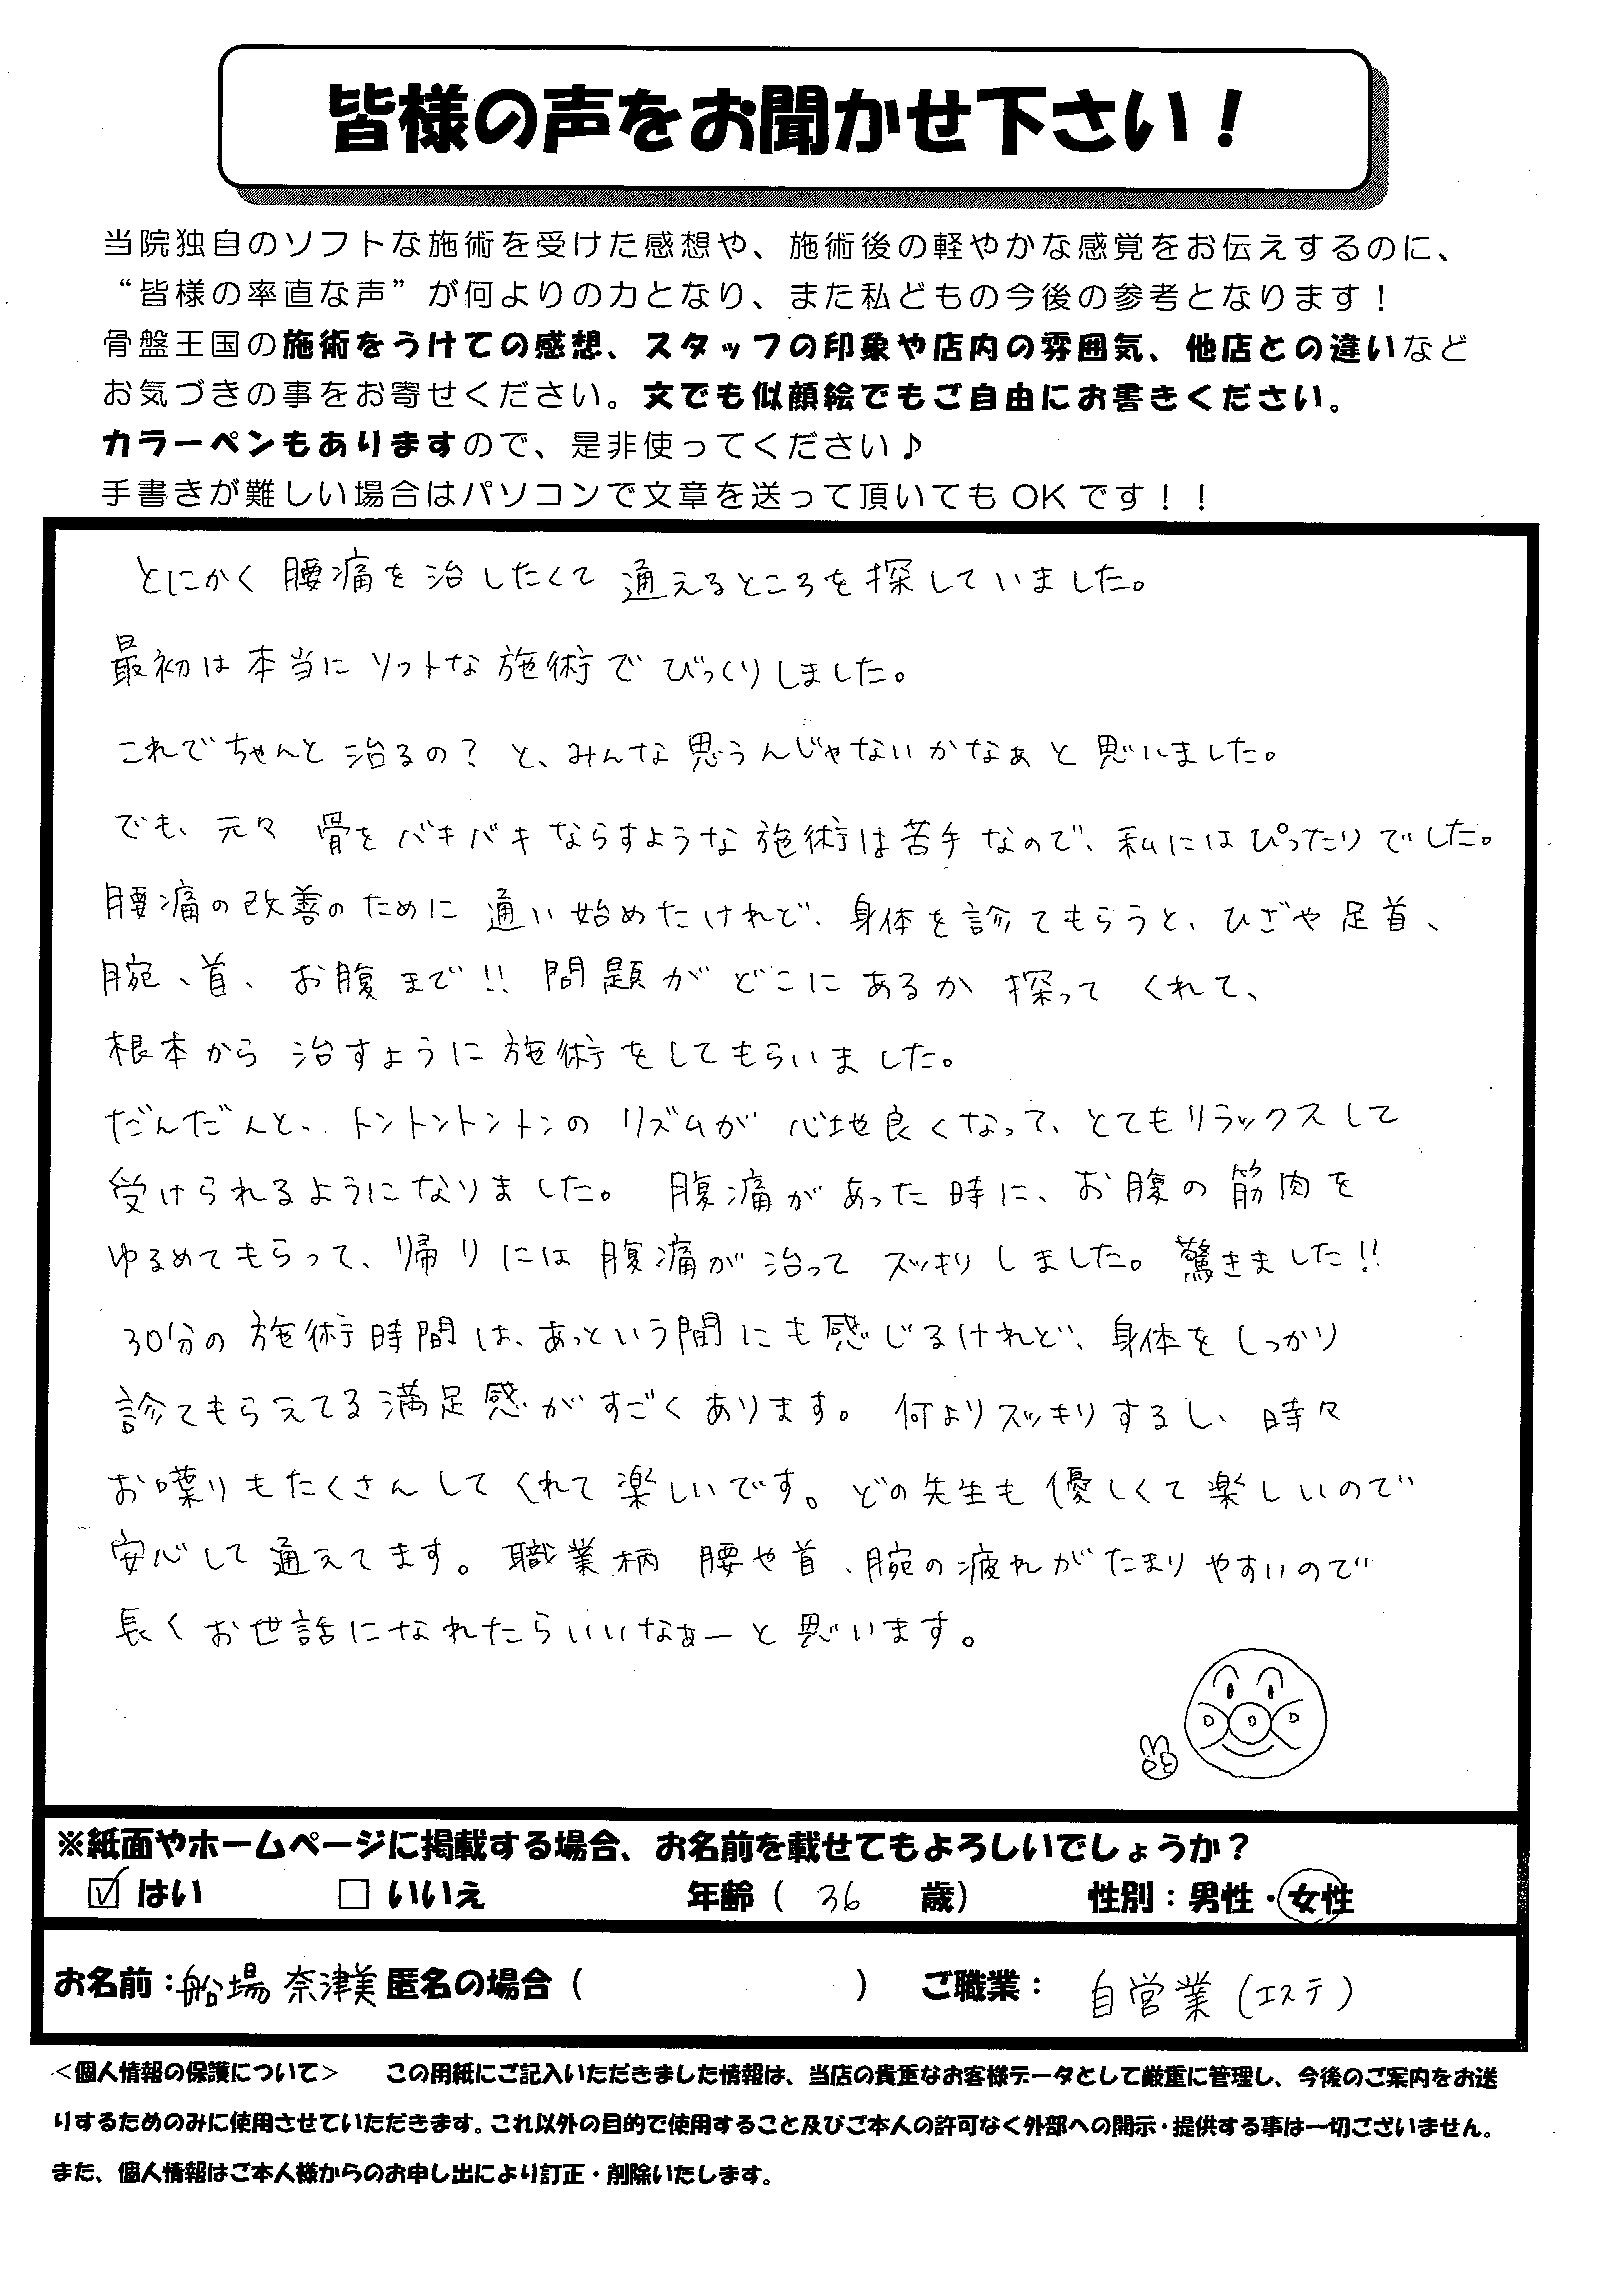 皆様の声をお聞かせ下さい！
当院独自のソフトな施術を受けた感想や、施術後の軽やかな感覚をお伝えするのに、
“皆様の率直な声”が何よりの力となり、また私どもの今後の参考となります！
骨盤王国の施術をうけての感想、スタッフの印象や店内の雰囲気、他店との違いなど
お気づきの事をお寄せください。文でも似顔絵でもご自由にお書きください。
カラーペンもありますので、是非使ってください♪
手書きが難しい場合はパソコンで文章を送って頂いてもOKです！！
とにかく腰痛を治したくて通えるところを探していました。
最初は本当にソフトな施術でびっくりしました。
これでちゃんと治るの？と、みんな思うんじゃないかなぁと思いました。
でも、元々骨をバキバキならすような施術は苦手なので、私にはぴったりでした。
腰痛の改善のために通い始めたけれど、身体を診てもらうと、ひざや足首、
腕、首、お腹まで!!問題がどこにあるか探ってくれて、
根本から治すように施術をしてもらいました。
だんだんと、トントントントンのリズムが心地良くなって、とてもリラックスして
受けられるようになりました。腹痛があった時に、お腹の筋肉を
ゆるめてもらって、帰りには腹痛が治ってスッキリしました。驚きました!!
30分の施術時間は、あっという間にも感じるけれど、身体をしっかり
診てもらえてる満足感がすごくあります。何よりスッキリするし、時々
お喋りもたくさんしてくれて楽しいです。どの先生も優しくて楽しいので
安心して通えてます。職業柄腰や首、腕の疲れがたまりやすいので
長くお世話になれたらいいなぁーと思います。
※紙面やホームページに掲載する場合、お名前を載せてもよろしいでしょうか？
☑はい □いいえ 年齢（36歳） 性別：男性・女性
お名前：船場 奈津美 匿名の場合（ ） ご職業：自営業（エステ）
＜個人情報の保護について＞ この用紙にご記入いただきました情報は、当店の貴重なお客様データとして厳重に管理し、今後のご案内をお送
りするためのみに使用させていただきます。これ以外の目的で使用すること及びご本人の許可なく外部への開示・提供する事は一切ございません。
また、個人情報はご本人様からのお申し出により訂正・削除いたします。